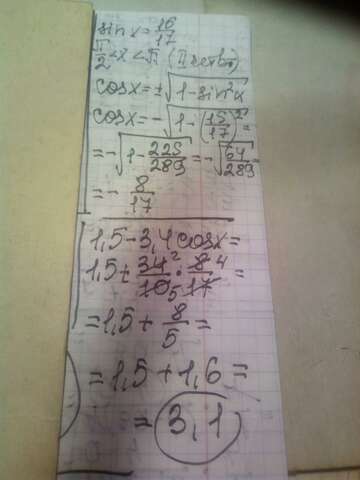 sin x = 15/17
π/2 < x < π (II четв.)
cos x = ±√(1 - sin²x)
cos x = -√(1 - (15/17)²) =
= -√(1 - 225/289) = -√(64/289) =
= - 8/17
1,5 - 3,4 cos x =
1,5 + 34²/10₅ · 8⁴/17 =
= 1,5 + 8/5 =
= 1,5 + 1,6 =
= 3,1